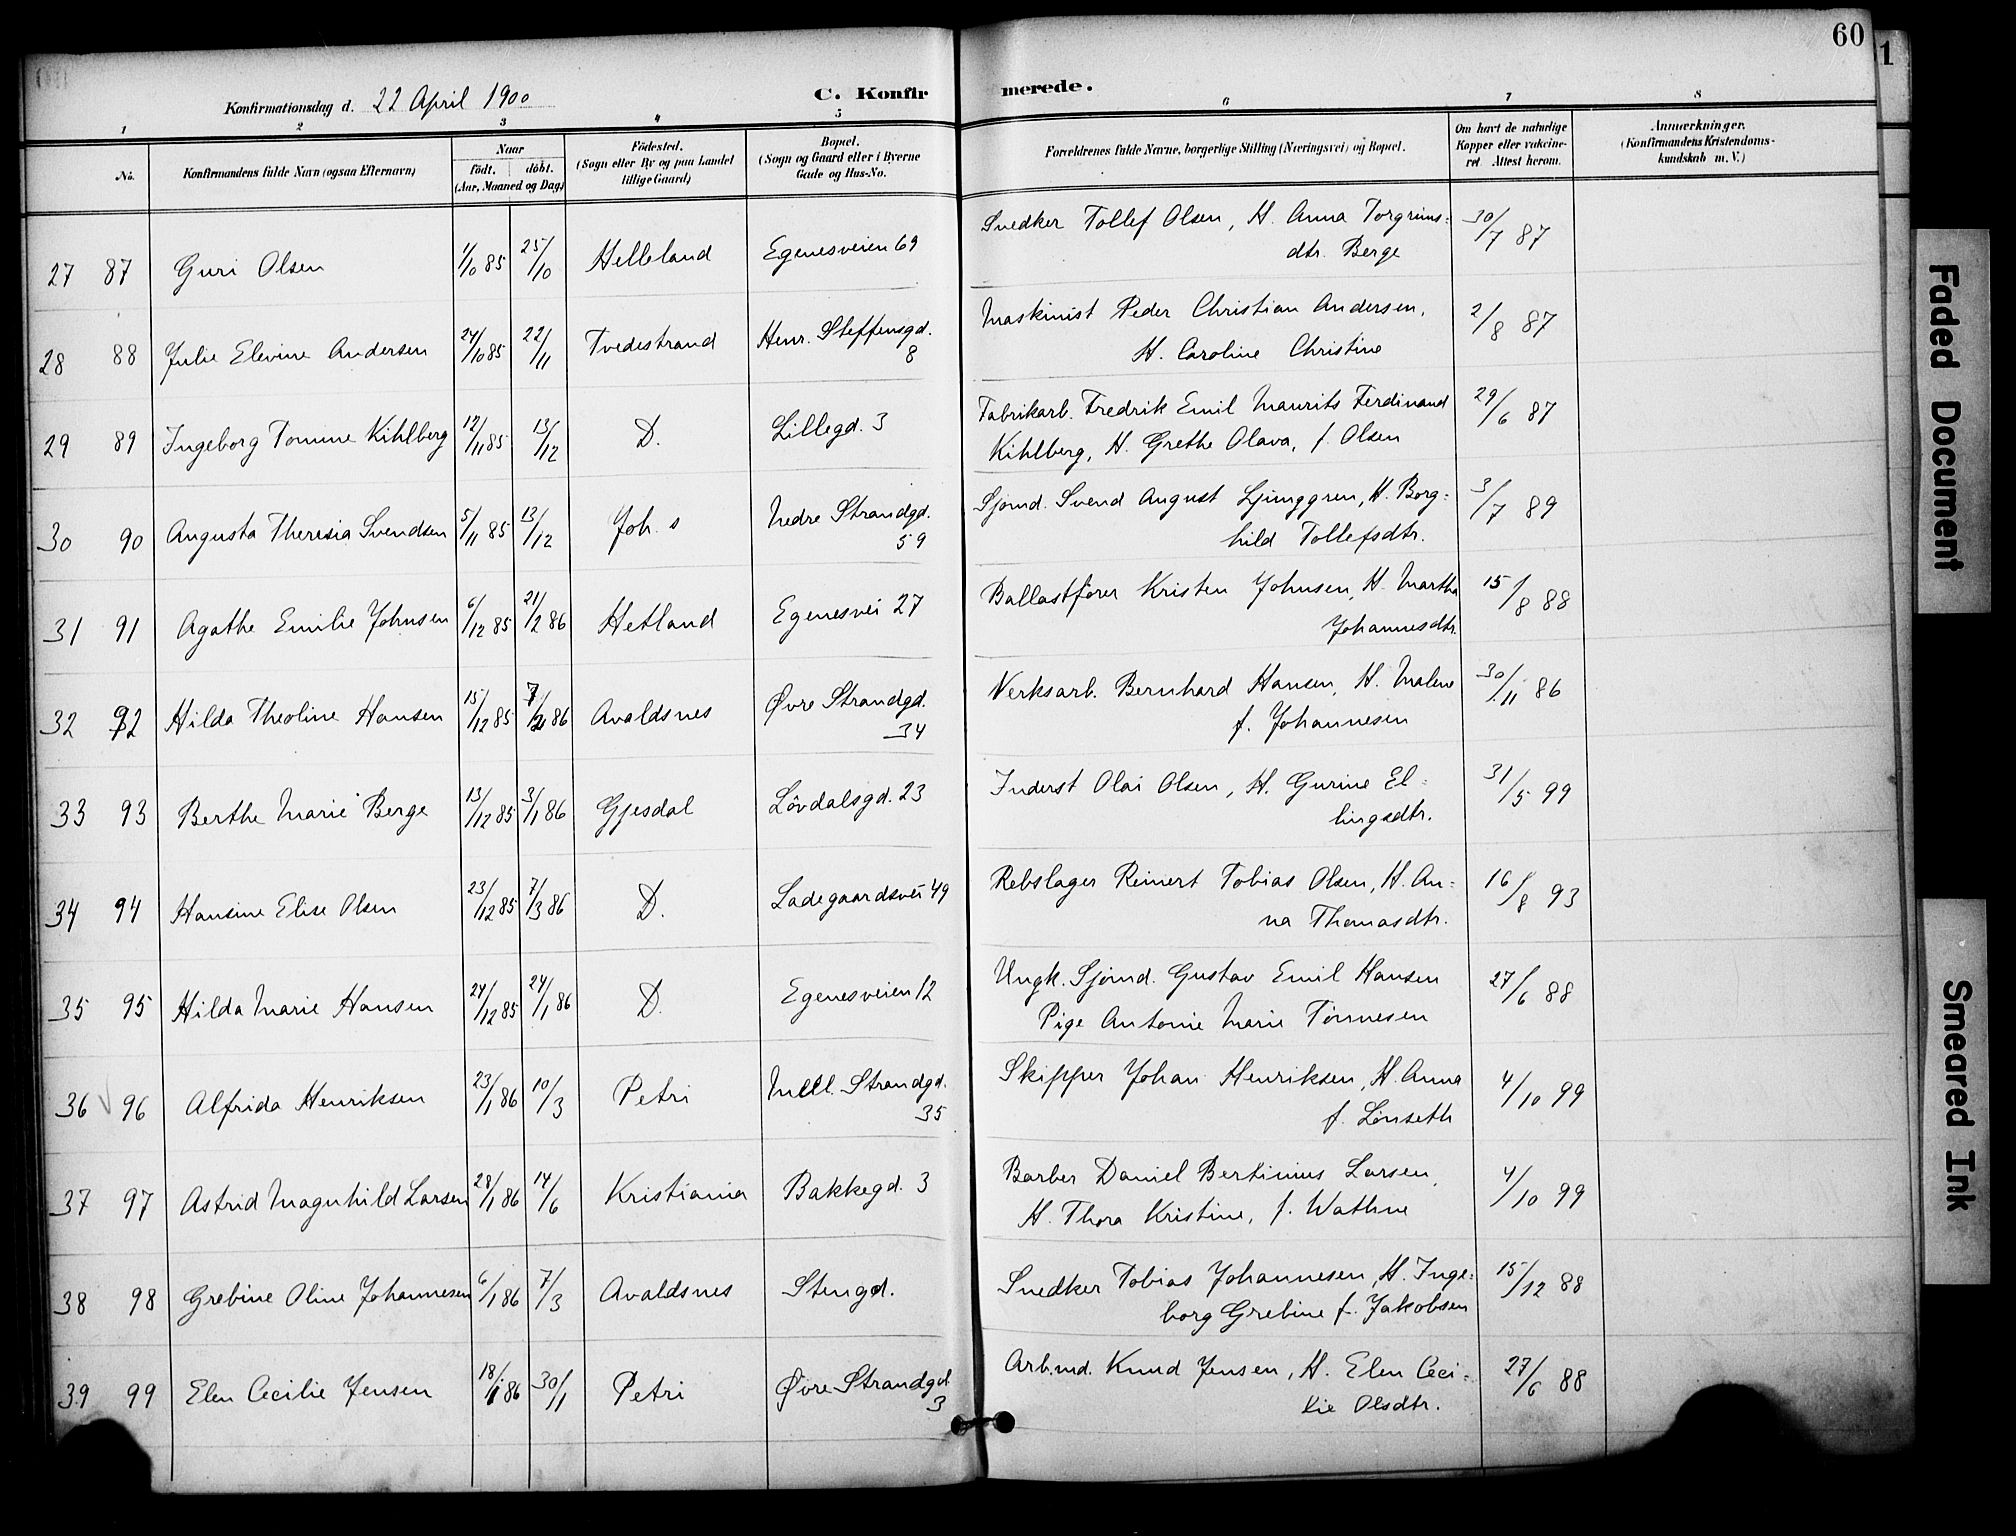 60
1
Konfirmationsdag d. 22 April 1900
C. Konfirmerede.
1 2 3 4 5 6 7 8
No.
Konfirmandens fulde Navn (ogsaa Efternavn)
Naar
født. døbt.
(Aar, Maaned og Dag)
Fødested.
(Sogn eller By og paa Landet
tillige Gaard)
Bopæl.
(Sogn og Gaard eller i Byerne
Gade og Hus-No.
Forældrenes fulde Navne, borgerlige Stilling (Næringsvei) og Bopæl.
Om havt de naturlige
Kopper eller vakcine-
ret. Attest herom.
Anmærkninger.
(Konfirmandens Kristendoms-
kundskab m. V.)
27 87 Guri Olsen 1/10 85 25/10 Helleland Egenesveien 69 Snedker Tollef Olsen, H. Anna Torgrims= 30/7 87
dtr. Berge
28 88 Julie Elevine Andersen 24/10 85 22/11 Tvedestrand Henr. Steffensgd. Maskinist Peder Christian Andersen, 2/8 87
8 H. Caroline Christine
29 89 Ingeborg Tomine Kihlberg 12/11 85 13/12 D. Lillegd. 3 Fabrikarb. Fredrik Emil Maurits Ferdinand 29/6 87
Kihlberg, H. Grethe Olava, f. Olsen
30 90 Augusta Theresia Svendsen 5/11 85 13/12 Joh. s Nedre Strandgd. Sjømd. Svend August Ljunggren, H. Borg= 3/7 89
59 hild Tollefsdtr.
31 91 Agathe Emilie Johnsen 6/12 85 21/2 86 Hetland Egenesvei 27 Ballastfører Kristen Johnsen, H. Martha 15/8 88
Johannesdtr.
32 92 Hilda Theoline Hansen 15/12 85 7/2 86 Avaldsnes Øvre Strandgd. Verksarb. Bernhard Hansen, H. Malene 30/11 86
34 f. Johannesen
33 93 Berthe Marie Berge 13/12 85 3/1 86 Gjesdal Løvdalsgd. 23 Inderst Olai Olsen, H. Gurine El= 31/5 99
lingsdtr.
34 94 Hansine Elise Olsen 23/12 85 7/3 86 D. Ladegaardsvei 49 Rebslager Reinert Tobias Olsen, H. An= 16/8 93
na Thomasdtr.
35 95 Hilda Marie Hansen 24/12 85 24/1 86 D. Egenesveien 12 Ungk. Sjømd. Gustav Emil Hansen 27/6 88
Pige Antonie Marie Tønnesen
36 96 Alfrida Henriksen 23/1 86 10/3 Petri Mell. Strandgd. Skipper Johan Henriksen, H. Anna 4/10 99
35 f. Lønseth
37 97 Astrid Magnhild Larsen 28/1 86 14/6 Kristiania Bakkegd. 3 Barber Daniel Bertinius Larsen, 4/10 99
H. Thora Kristine, f. Wathne
38 98 Grebine Oline Johannesen 6/1 86 7/3 Avaldsnes Stengd. Snedker Tobias Johannesen, H. Inge= 15/12 88
borg Grebine f. Jakobsen
39 99 Elen Cecilie Jensen 18/1 86 30/11 Petri Øvre Strandgd. Arb.md. Knud Jensen, H. Elen Ceci= 27/6 88
3 lie Olsdtr.
Faded Document
Smeared Ink